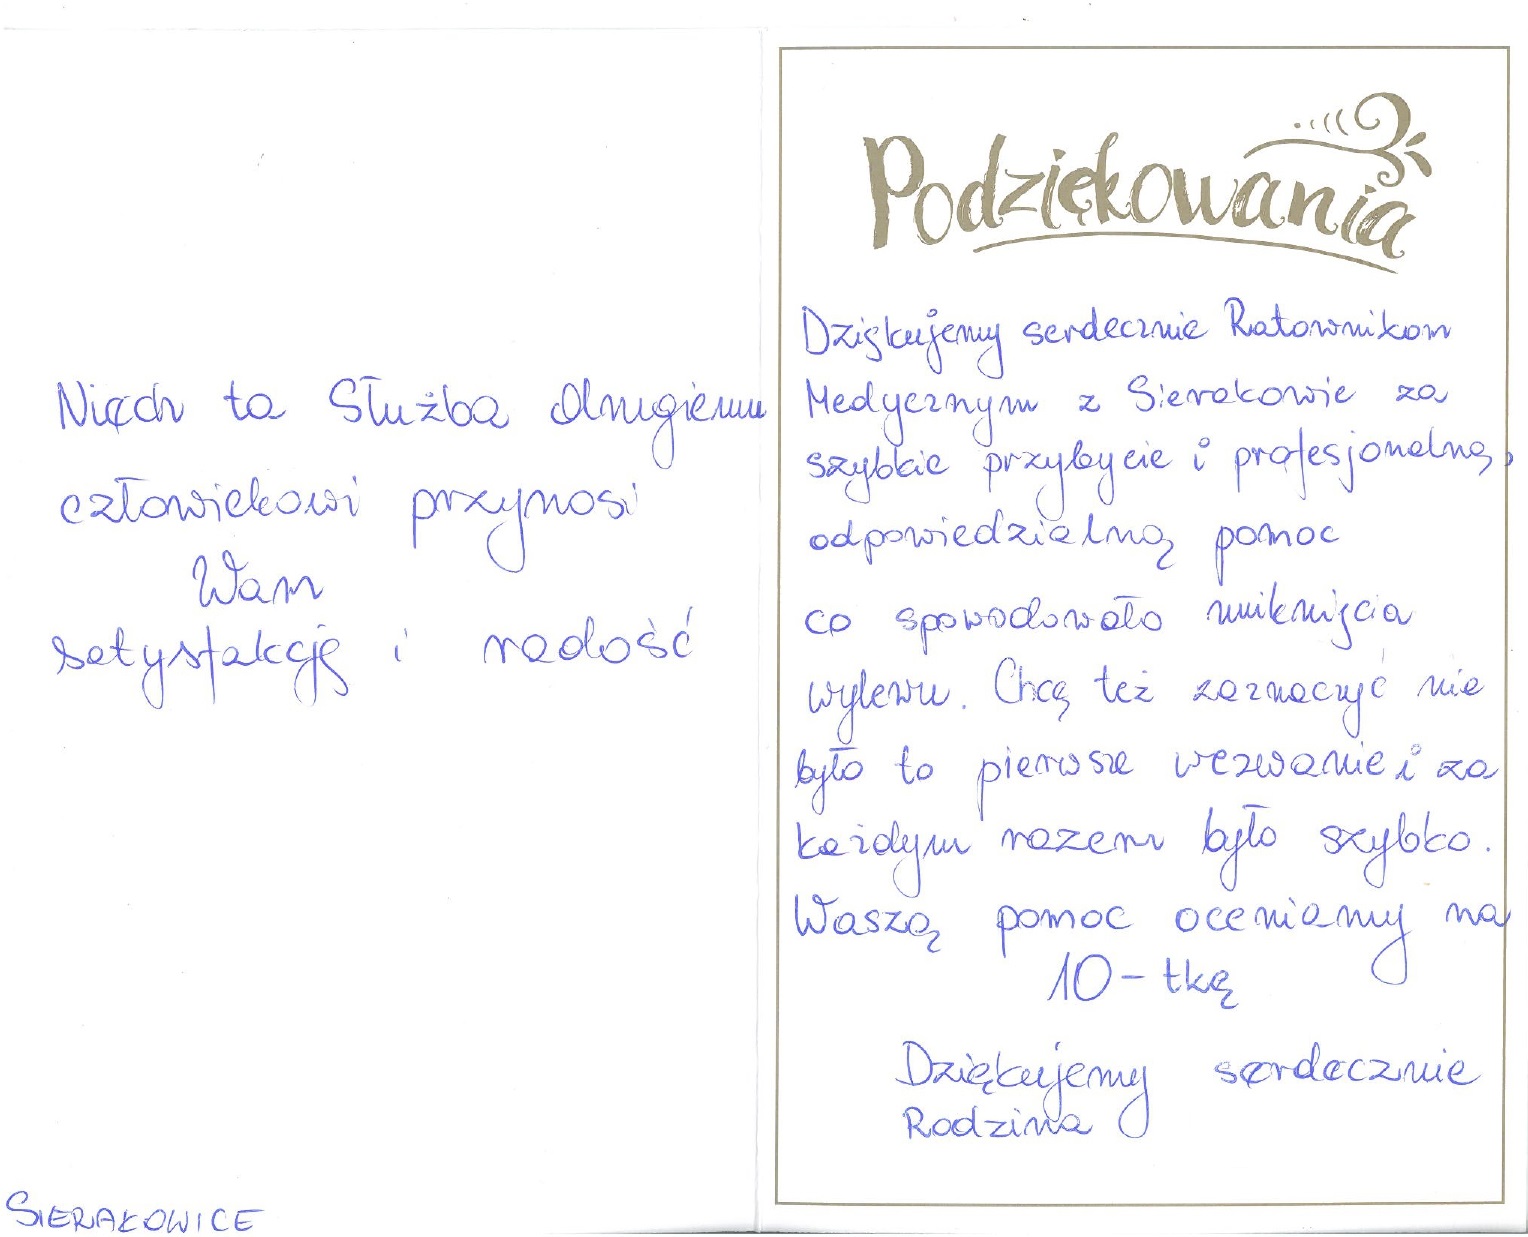 Niech ta Służba drugiemu
człowiekowi przynosi
Wam
satysfakcję i radość
SIERAKOWICE
Podziękowania
Dziękujemy serdecznie Ratownikom
Medycznym z Sierakowic za
szybkie przybycie i profesjonalną,
odpowiedzialną pomoc
co spowodowało uniknięcia
wylewu. Chcę też zaznaczyć nie
było to pierwsze wezwanie i za
każdym razem było szybko.
Waszą pomoc oceniamy na
10-tkę
Dziękujemy serdecznie
Rodzina